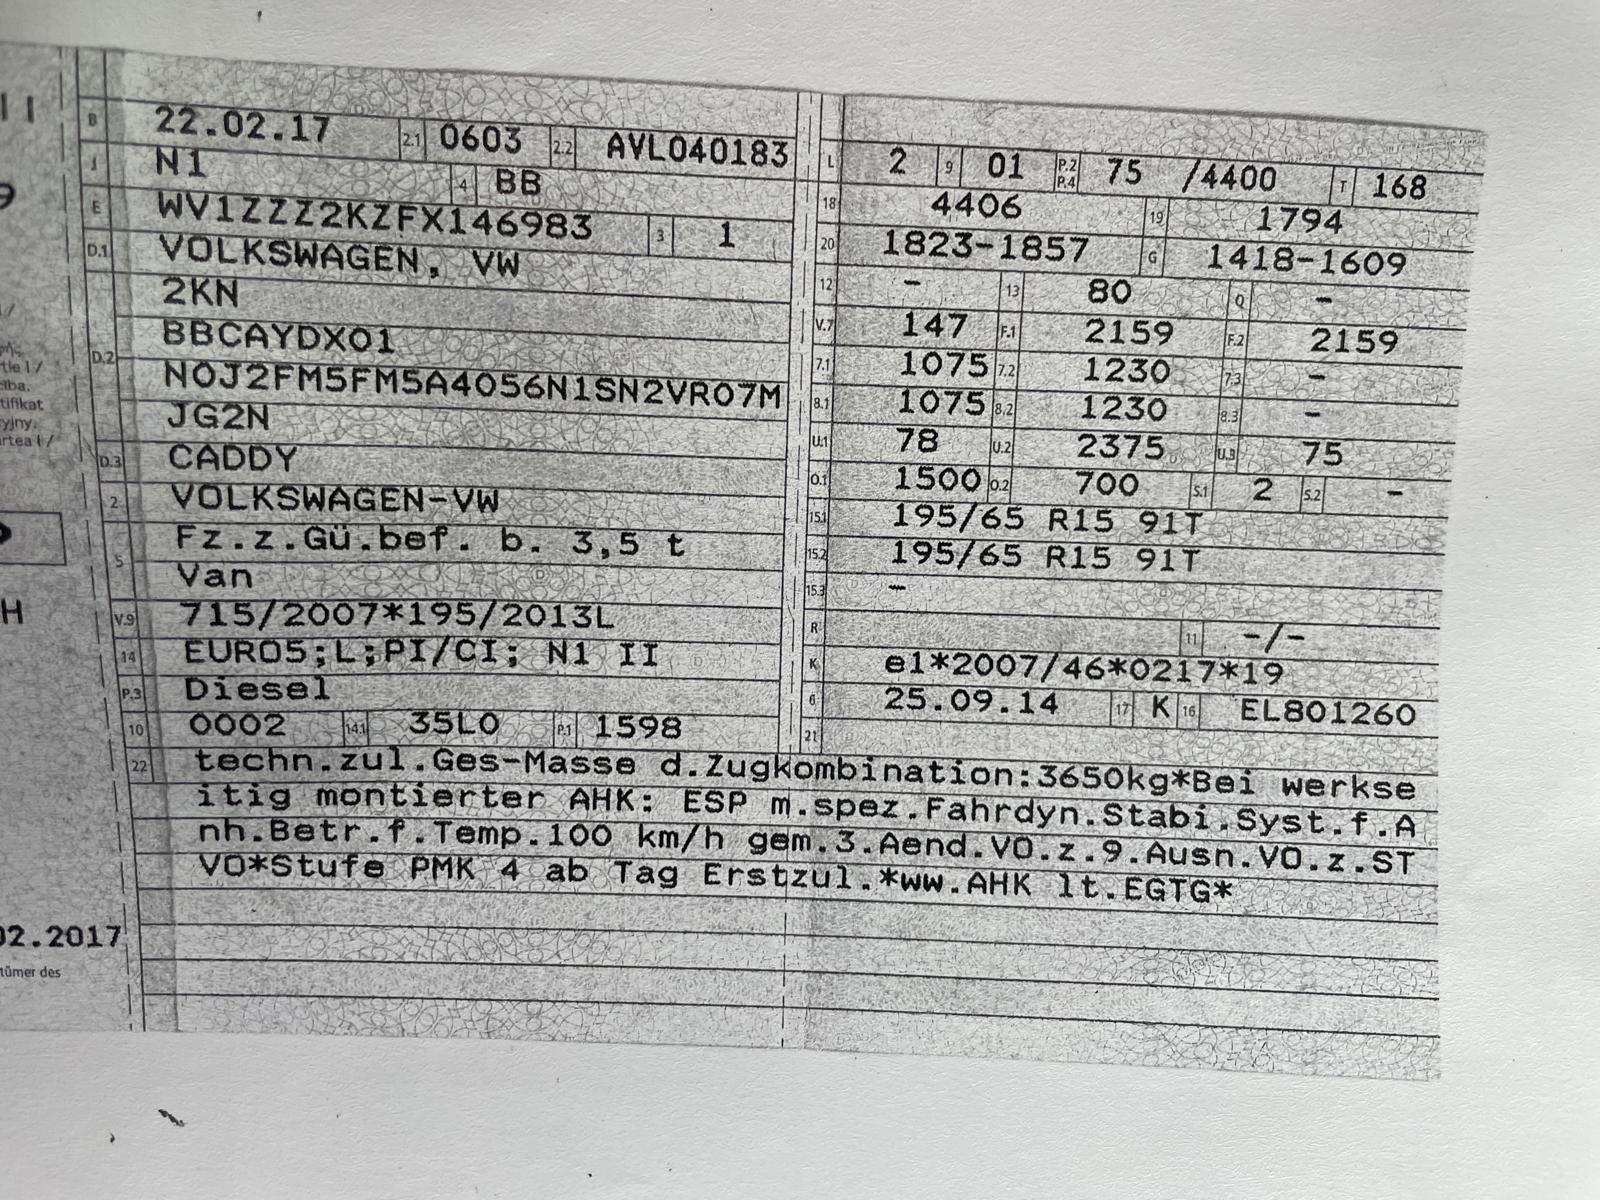 B 22.02.17 2.1 0603 2.2 AVL040183
J N1 4 BB
E WV1ZZZ2KZFX146983 3 1
D.1 VOLKSWAGEN, VW
D.2 2KN
BBCAYDX01
N0J2FM5FM5A4056N1SN2VR07M
JG2N
D.3 CADDY
2 VOLKSWAGEN-VW
5 Fz.z.Gü.bef. b. 3,5 t
Van
V.9 715/2007*195/2013L
14 EURO5;L;PI/CI; N1 II
P.3 Diesel
10 0002 14.1 35L0 P.1 1598
L 2 9 01 P.2 P.4 75 /4400 T 168
18 4406 19 1794
20 1823-1857 G 1418-1609
12 - 13 80 Q -
V.7 147 F.1 2159 F.2 2159
7.1 1075 7.2 1230 7.3 -
8.1 1075 8.2 1230 8.3 -
U.1 78 U.2 2375 U.3 75
O.1 1500 O.2 700 S.1 2 S.2 -
15.1 195/65 R15 91T
15.2 195/65 R15 91T
15.3 -
R 11 -/-
K e1*2007/46*0217*19
6 25.09.14 17 K 16 EL801260
21
22 techn.zul.Ges-Masse d.Zugkombination:3650kg*Bei werkse
itig montierter AHK: ESP m.spez.Fahrdyn.Stabi.Syst.f.A
nh.Betr.f.Temp.100 km/h gem.3.Aend.VO.z.9.Ausn.VO.z.ST
VO*Stufe PMK 4 ab Tag Erstzul.*ww.AHK lt.EGTG*
II
tie I /
tifikat
yjny.
H
02.2017
tümer des